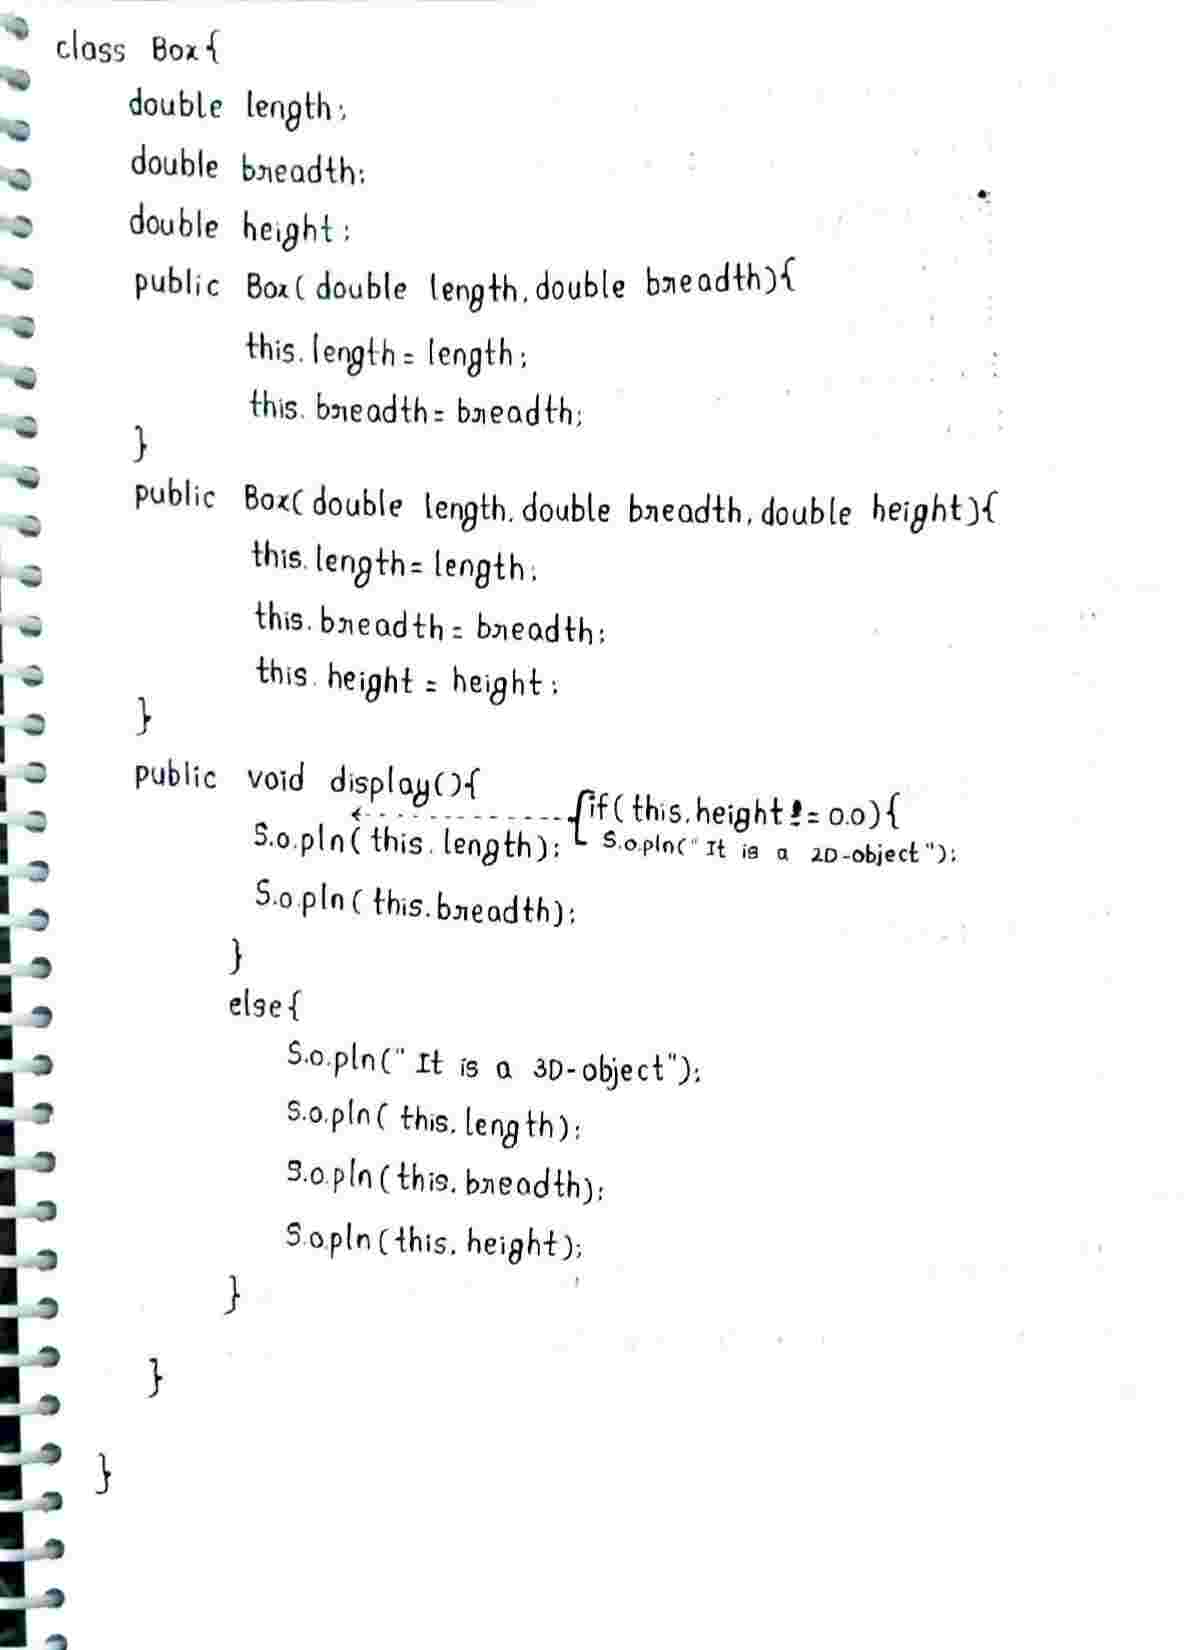 class Box{
double length;
double breadth;
double height;
public Box( double length, double breadth){
this.length = length;
this. breadth = breadth;
}
public Box( double length, double breadth, double height){
this.length = length;
this.breadth = breadth;
this. height = height;
}
public void display(){
if( this.height != 0.0){
S.o.pln(" It is a 2D-object");
S.o.pln( this. length);
S.o.pln( this.breadth);
}
else{
S.o.pln(" It is a 3D-object");
S.o.pln( this. length);
S.o.pln( this. breadth);
S.o.pln(this. height);
}
}
}